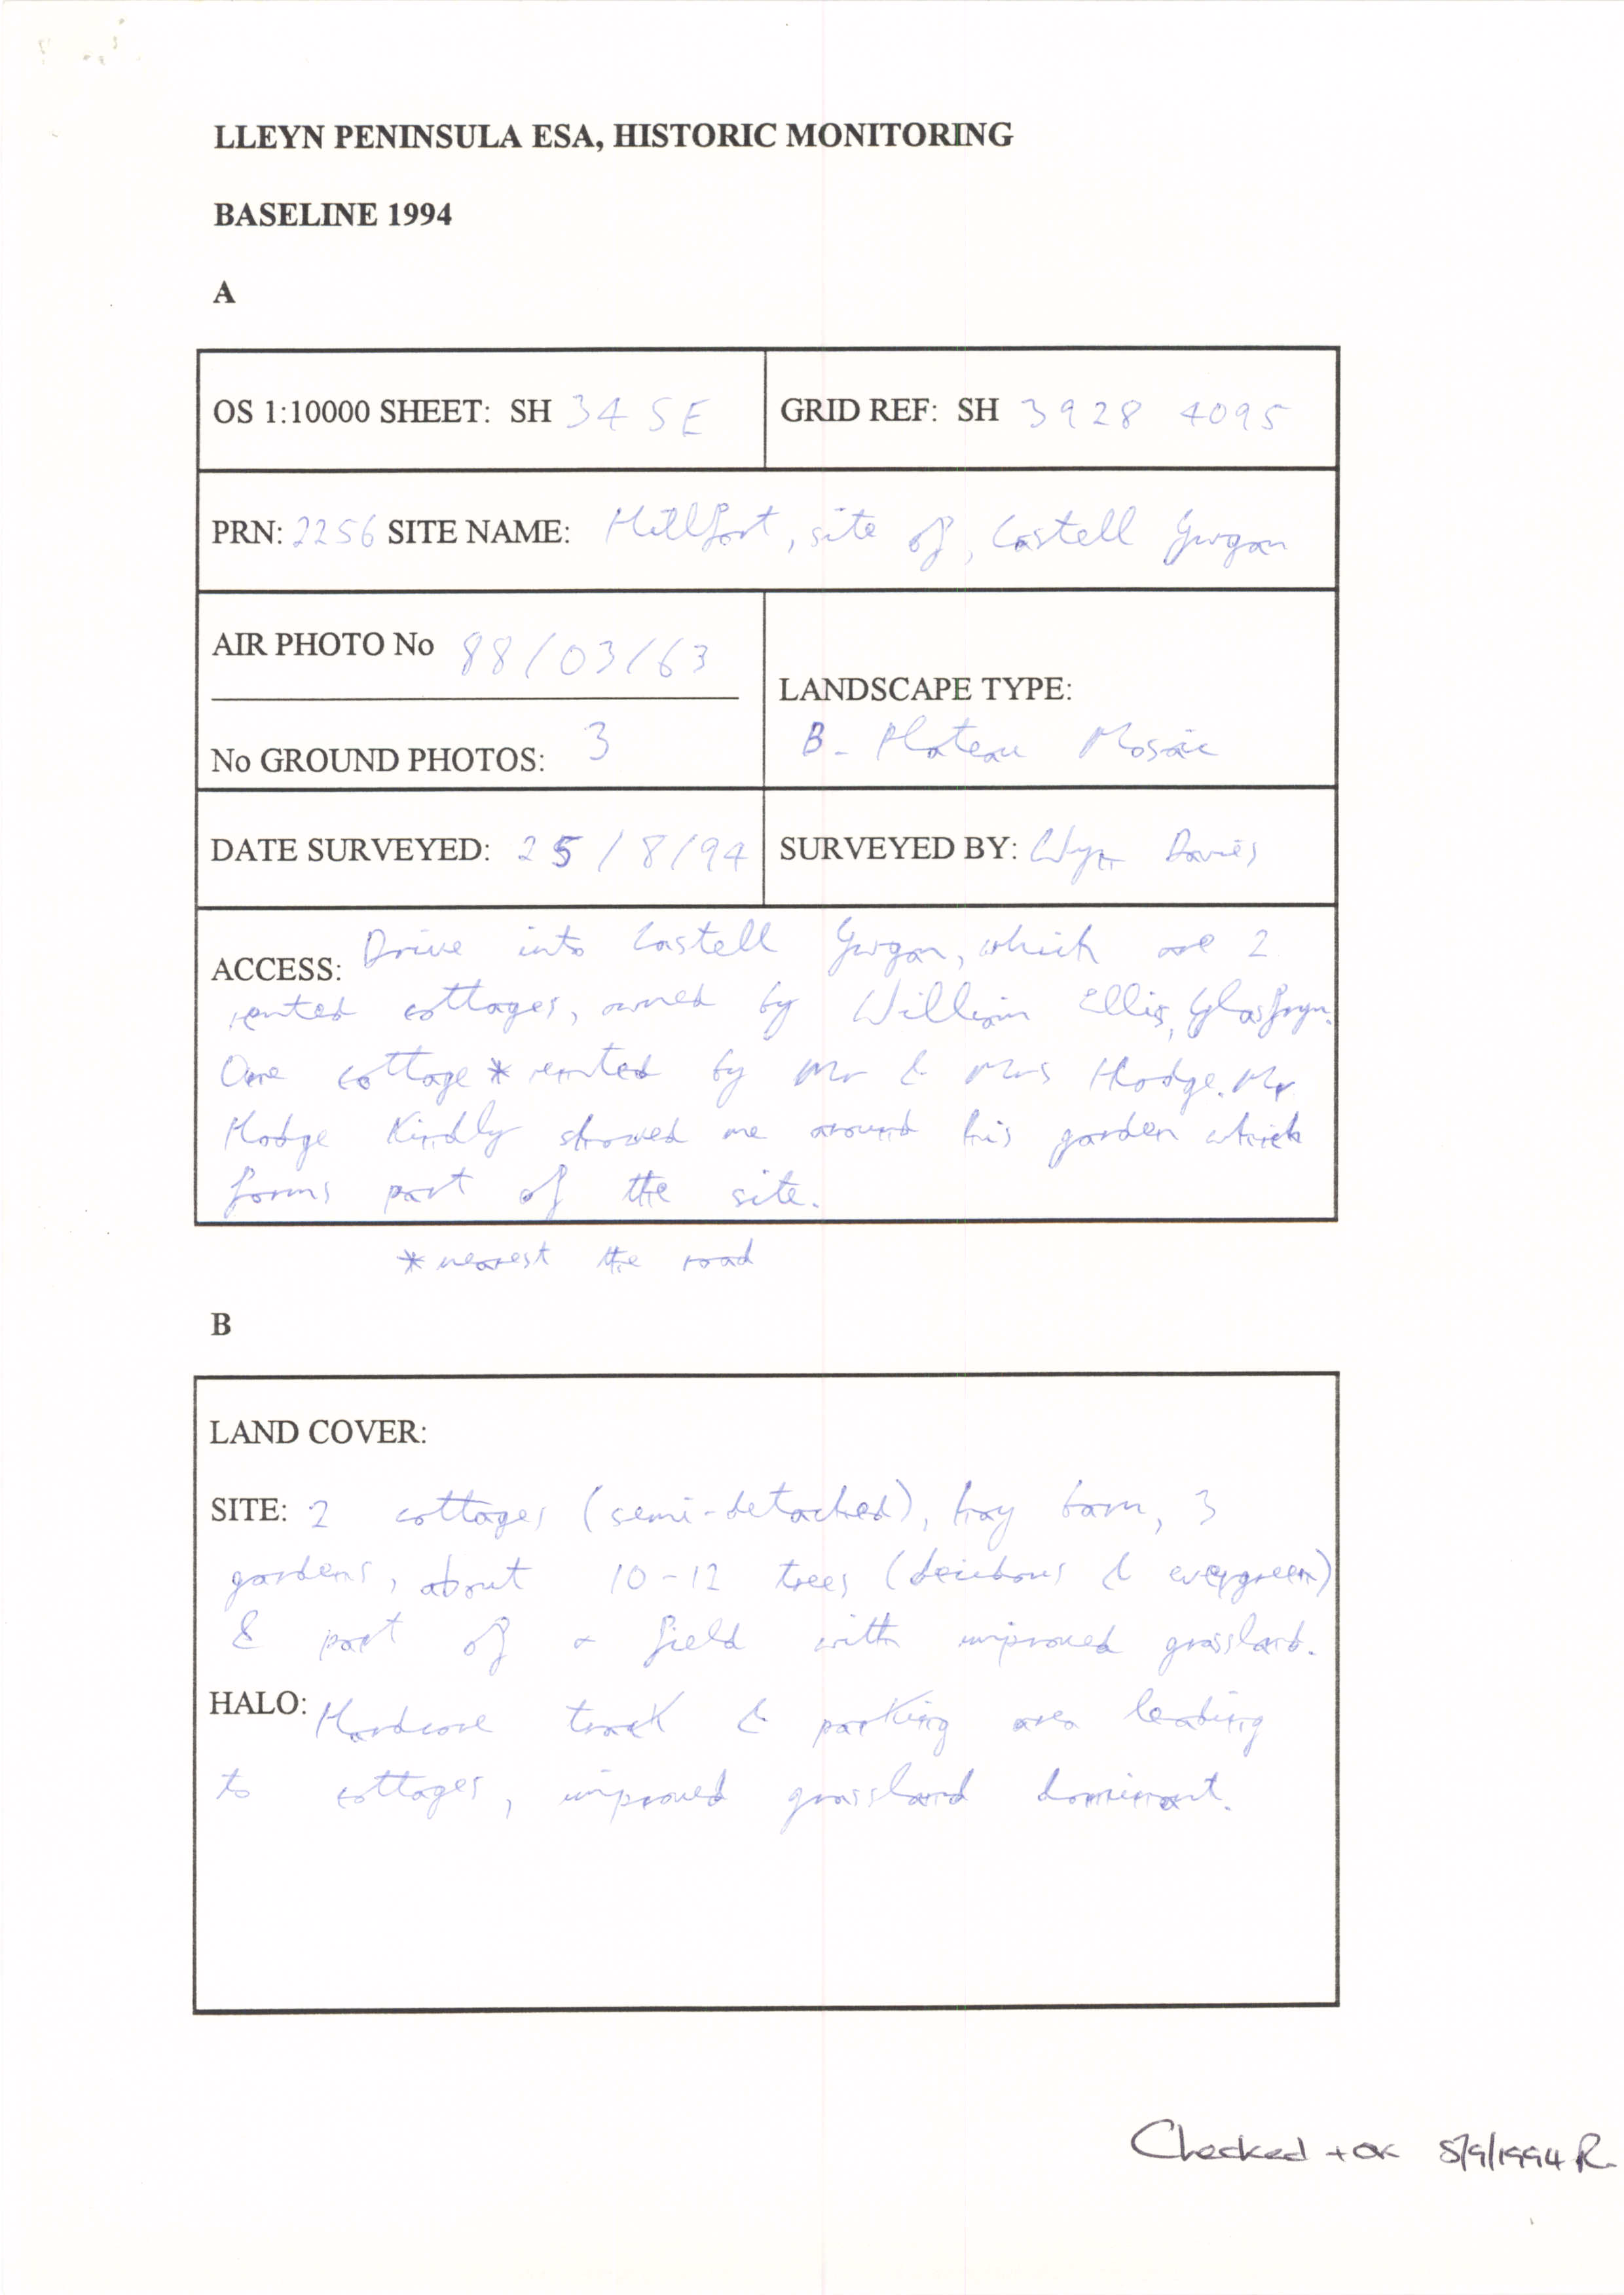 LLEYN PENINSULA ESA, HISTORIC MONITORING
BASELINE 1994
A
OS 1:10000 SHEET: SH 34 SE
GRID REF: SH 3928 4095
PRN: 2256 SITE NAME: Hillfort, site of, Castell Gwgan
AIR PHOTO No 88/03/63
No GROUND PHOTOS: 3
LANDSCAPE TYPE:
B - Plateau Mosaic
DATE SURVEYED: 25/8/94
SURVEYED BY: Wyn Davies
ACCESS: Drive into Castell Gwgan, which are 2
rented cottages, owned by William Ellis, Glasfryn.
One cottage * rented by Mr & Mrs Hodge. Mr
Hodge kindly showed me around his garden which
forms part of the site.
* nearest the road
B
LAND COVER:
SITE: 2 cottages (semi-detached), hay barn, 3
gardens, about 10-12 trees (deciduous & evergreen)
& part of a field with improved grassland.
HALO: Hardcore track & parking area leading
to cottages, improved grassland dominant.
Checked + OK 5/9/1994 R.